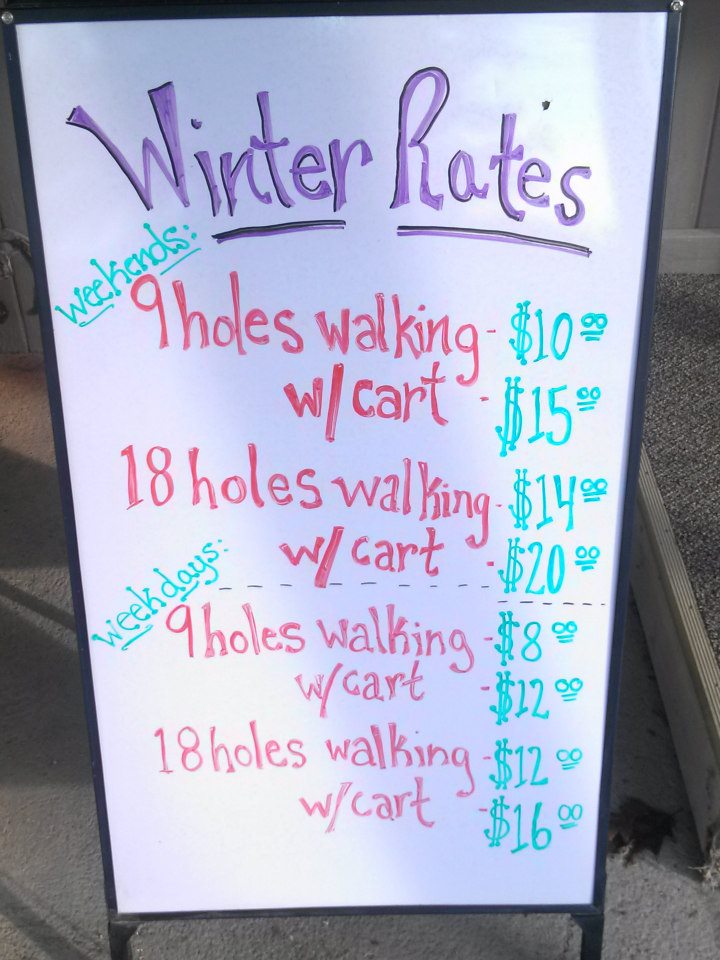 Winter Rates
weekends:
9 holes walking - $10.00
w/cart - $15.00
18 holes walking - $14.00
w/cart - $20.00
weekdays:
9 holes walking - $8.00
w/cart - $12.00
18 holes walking - $12.00
w/cart - $16.00